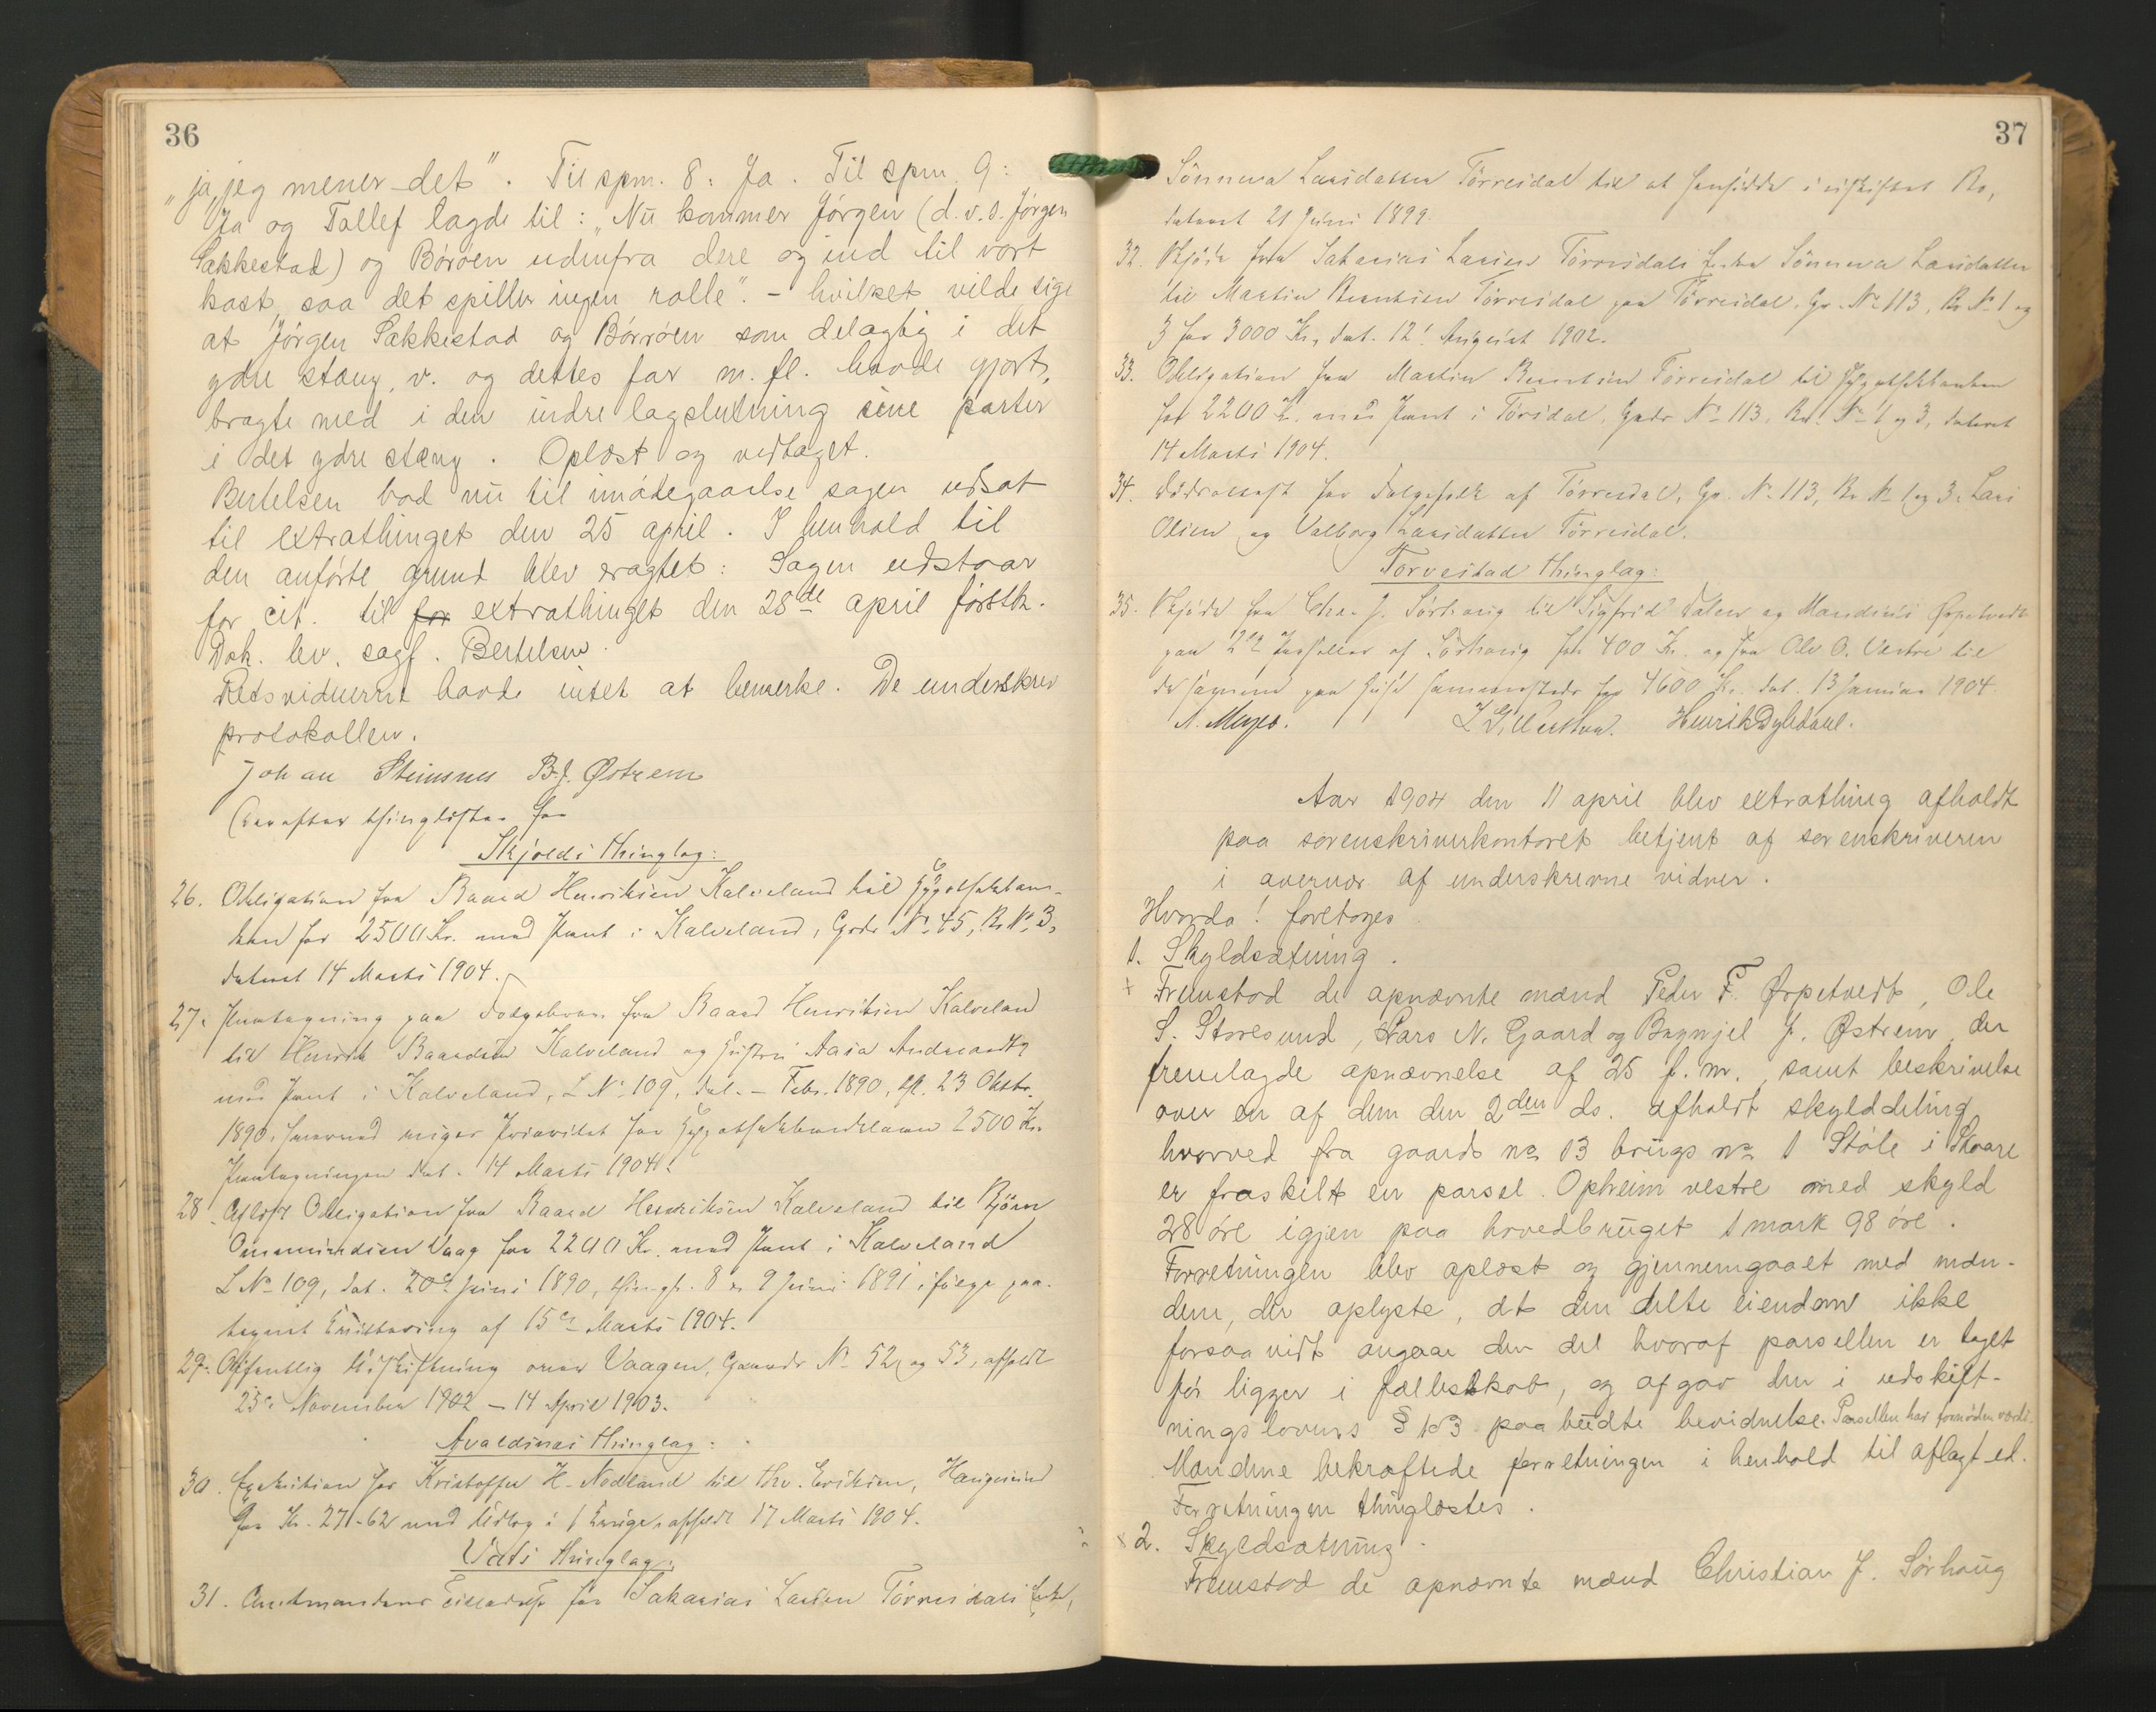 36
"ja, jeg mener det". Til spm. 8: Ja. Til spm. 9:
Ja og Tollef lagde til: "Nu kommer Jørgen (d.v.s. Jørgen
Sakkestad) og Børøen udenfra dere og ind til vort
kast, saa det spiller ingen rolle". - hvilket vilde sige
at Jørgen Sakkestad og Børrøen som delagtig i det
ydre stæng, v. og dettes far m. fl. havde gjort,
bragte med i den indre lagslutning sine parter
i det ydre stæng. Oplæst og vedtaget.
Bertelsen bad nu til imødegaaelse sagen udsat
til extrathinget den 25 april. I henhold til
den anførte grund blev eragtet: Sagen udstaar
for cit. til for extrathinget den 25de april førstk.
Dok. lev. sagf. Bertelsen.
Retsvidnerne havde intet at bemerke. De underskrev
protokollen.
Johan Steinsnes B. J. Østrem
Derefter thinglæstes for
Skjolds thinglag:
26. Obligation fra Baard Henriksen Kalveland til Hypothekban-
ken for 2500 Kr. med Pant i Kalveland, Grds No 45, B. No 3,
dateret 14 Marts 1904.
27. Paategning paa Føderaad fra Baard Henriksen Kalveland
til Henrik Baardsen Kalveland og Hustru Aasa Andersdtr
med Pant i Kalveland, L No 109, dat. - Febr. 1890, tgl. 23 Oktbr.
1890, hvorved viger Prioritet for Hypothekbanklaan 2500 Kr.
Paategningen dat. 14 Marts 1904.
28. Aflyst Obligation fra Baard Henriksen Kalveland til Bjørn
Ommundsen Vaag for 2200 Kr. med Pant i Kalveland
L No 109, dat. 20de Juni 1890, thingl. 8 & 9 Juni 1891 ifølge paa-
tegnet Kvittering af 15de Marts 1904.
29. Offentlig Udskiftning over Vaagen, Gaards No 52 og 53, afholdt
25de November 1902 - 14 April 1903.
Avaldsnes thinglag:
30. Exekution for Kristoffer H. Nodland hos Thv. Eriksen, Haugesund
for Kr. 271-62 med Udlæg i afholdt 17 Marts 1904.
Vats thinglag:
31. Amtmandens Tilladelse for Sakarias Larsen Tørresdals Enke,
37
Sønneva Larsdatter Tørresdal til at hensidde i uskiftet Bo,
dateret 21 Juni 1899.
32. Skjøde fra Sakarias Larsen Tørresdals Enke Sønneva Larsdatter
til Martin Berntsen Tørresdal paa Tørresdal, Gr. No 113, Br No 1 og
3 for 3000 Kr., dat. 12. August 1902.
33. Obligation fra Martin Berntsen Tørresdal til Hypothekbanken
for 2200 Kr. med Pant i Tørsdal, Grds No 113, Br. No 1 og 3, dateret
14 Marts 1904.
34. Dødsattest for Folgefolk af Tørresdal, Gr. No 113, Br No 1 og 3: Lars
Olsen og Valborg Larsdatter Tørresdal.
Torvestad thinglag:
35. Skjøde fra Chr. J. Sørhaug til Sigfrid Dalen og Mandius Ørpetvedt
paa 2de Parseller af Sørhaug for 400 Kr. og fra Ole O. Vestre til
de samme paa Huse sammesteds for 4600 Kr. dat. 13 Januar 1904.
N. Meyer. Henrik Dybdahl.
Aar 1904 den 11 april blev extrathing afholdt
paa sorenskriverkontoret betjent af sorenskriveren
i overvær af underskrevne vidner.
Hvorda! foretoges
1. Skyldsætning.
Fremstod de opnævnte mænd Peder F. Ørpetvedt, Ole
S. Storesund, Lars N. Gaard og Brynjel J. Østrem, der
fremlagde opnævnelse af 25 f. m., samt beskrivelse
over en af dem den 2den ds. afholdt skylddeling
hvorved fra gaards no 13 brugs no 1 Støle i Skaare
er fraskilt en parsel. Opheim vestre med skyld
28 øre igjen paa hovedbruget 1 mark 98 øre.
Forretningen blev oplæst og gjennemgaaet med mæn-
dene, der oplyste, at den delte eiendom ikke
forsaavidt angaar den del hvoraf parsellen er taget
før ligger i fællesskab, og afgav den i udskift-
ningslovens § 103 paabudte bevidnelse. Parsellen har fornøden værdi.
Mændene bekræftede forretningen i henhold til aflagt ed.
Forretningen thinglæstes.
2. Skyldsætning.
Fremstod de opnævnte mænd Christian J. Sørhaug